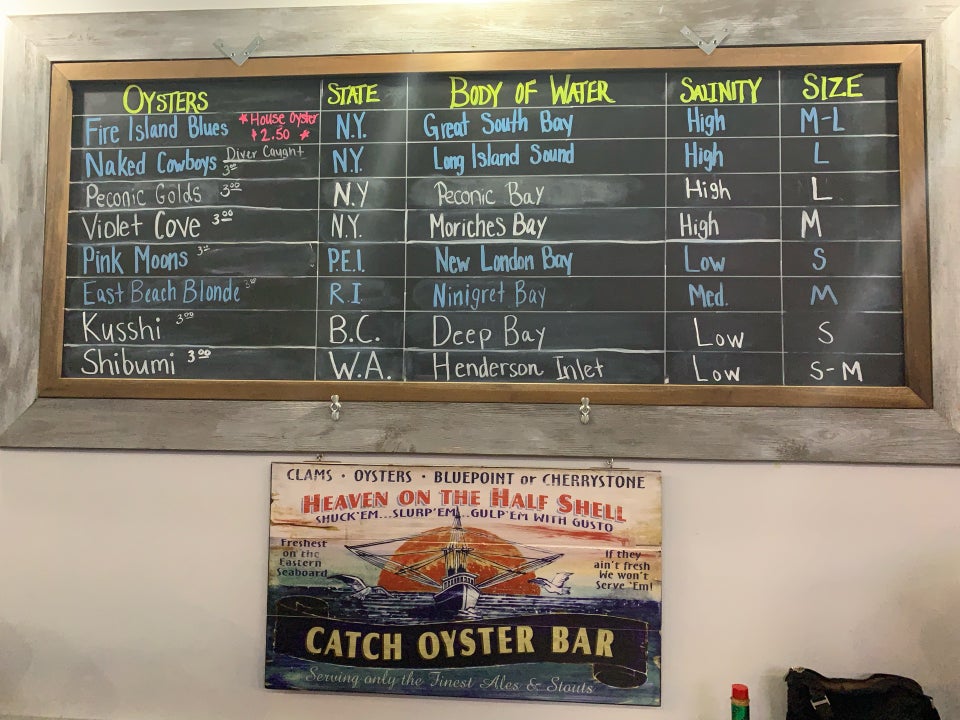 OYSTERS STATE BODY OF WATER SALINITY SIZE
Fire Island Blues *House Oyster $2.50 * N.Y. Great South Bay High M-L
Naked Cowboys Diver Caught 3.00 N.Y. Long Island Sound High L
Peconic Golds 3.00 N.Y Peconic Bay High L
Violet Cove 3.00 N.Y. Moriches Bay High M
Pink Moons P.E.I. New London Bay Low S
East Beach Blonde R.I. Ninigret Bay Med. M
Kusshi 3.00 B.C. Deep Bay Low S
Shibumi 3.00 W.A. Henderson Inlet Low S-M
CLAMS • OYSTERS • BLUEPOINT or CHERRYSTONE
HEAVEN ON THE HALF SHELL
SHUCK'EM...SLURP'EM...GULP'EM WITH GUSTO
Freshest
on the
Eastern
Seaboard
If they
ain't fresh
We won't
Serve 'Em!
CATCH OYSTER BAR
Serving only the Finest Ales & Stouts